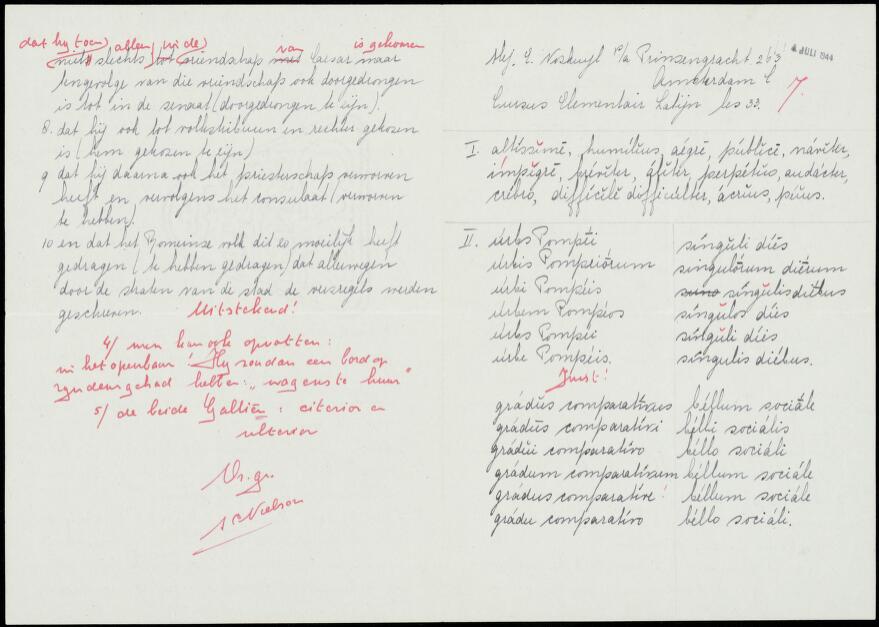 dat hij toen) alleen, in de)
van
is gekomen
niet slechts tot vriendschap met Caesar maar
tengevolge van die vriendschap ook doorgedrongen
is tot in de senaat (doorgedrongen te zijn).
8. dat hij ook tot volkstribuun en rechter gekozen
is (hem gekozen te zijn)
9 dat hij daarna ook het priesterschap verworven
heeft en, vervolgens het consulaat (verworven
te hebben).
10 en dat het Romeinse volk dit zo moeilijk heeft
gedragen (te hebben gedragen) dat allerwegen
door de straten van de stad de versregels werden
geschreven. Uitstekend!
4/ men kan ook opvatten:
in het openbaar. Hij zou dan een bord op
zijn dem gehad hebben: „wagens te huur"
5/ de beide Galliën: citerior en
ulterior
Vr. gr.
A C Nielson
Mej. E. Voskuyl p/a Prinsengracht 263
4 JULI 1944
Amsterdam C
Cursus Elementair Latijn les 33.
7.
I. altissimē, humilius, aegrē, publicē, naviter,
impigrē, breviter, aliter, perpetius, audacter,
crebro, difficilē difficulter, acrius, prius.
II. urbs Pompēi singuli diēs
urbis Pompeiōrum singulōrum diērum
urbi Pompēis singulis diēbus
urbem Pompēos singulos diēs
urbs Pompēi singuli diēs
urbe Pompēis. singulis diēbus.
Juist!
gradus comparativus bellum sociale
gradūs comparativi belli socialis
gradui comparativo bello sociali
gradum comparativum bellum sociale
gradus comparative! bellum sociale
gradu comparativo bello sociali.